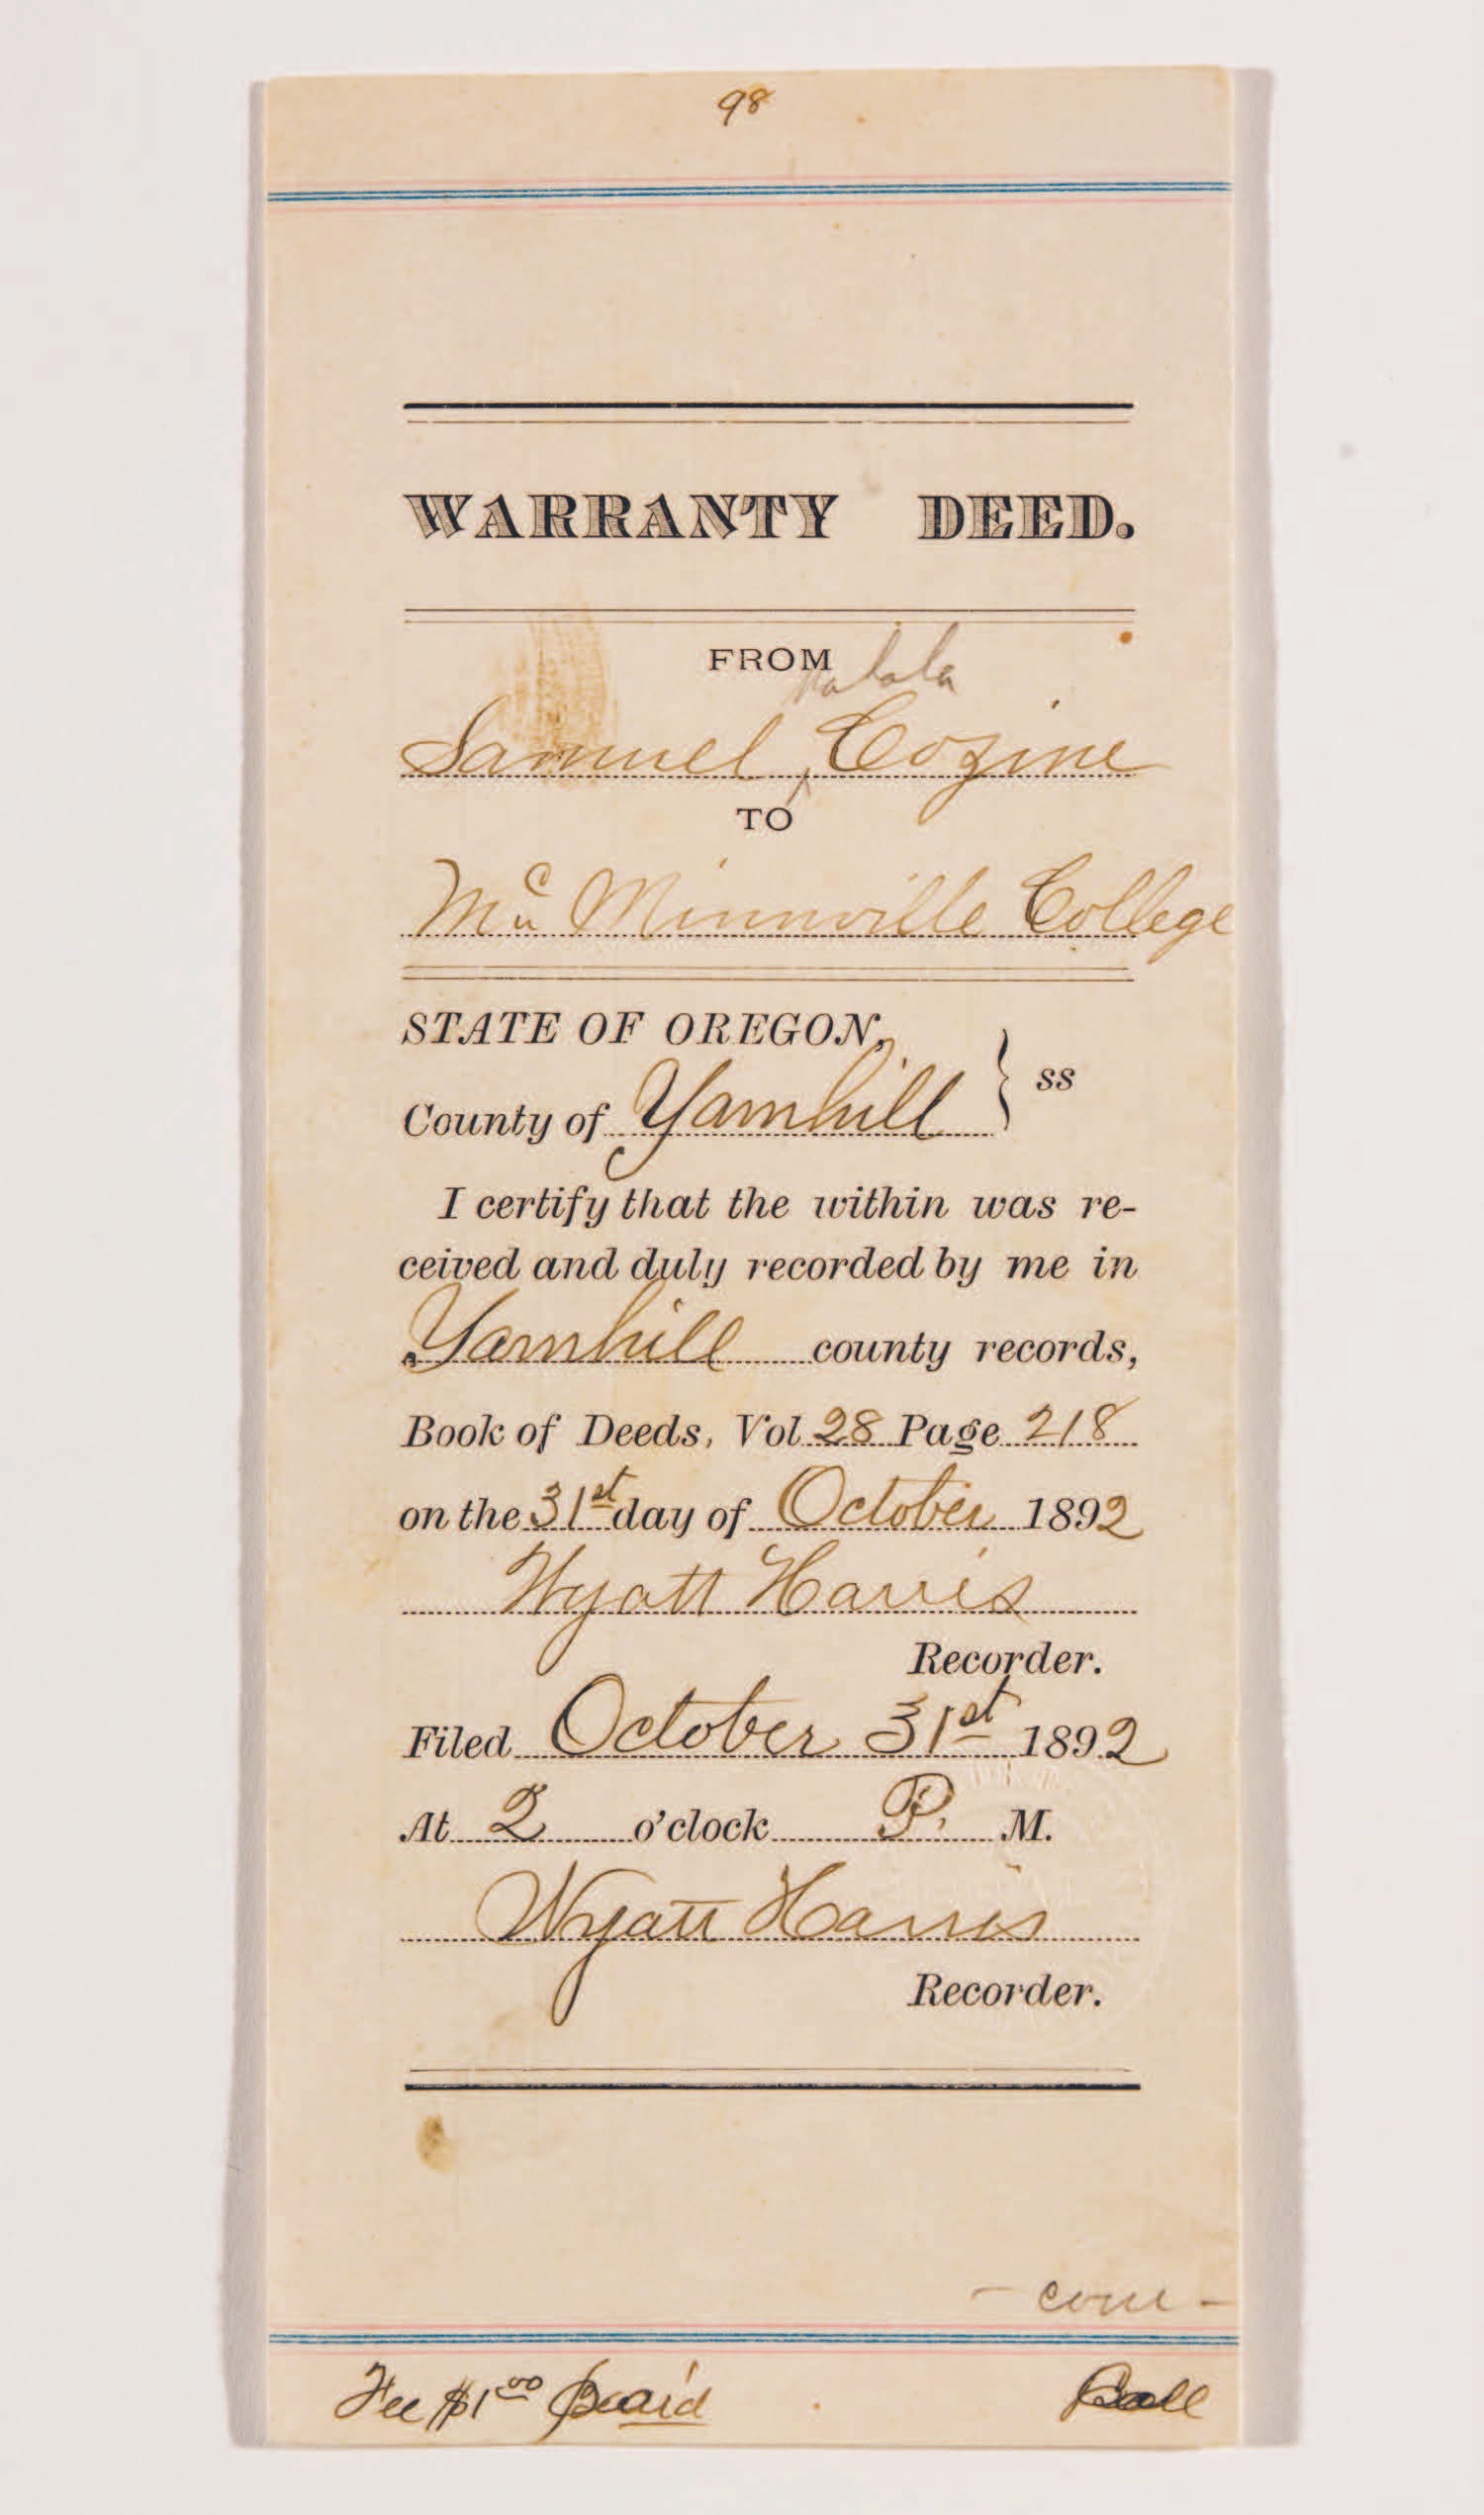 98
WARRANTY DEED.
FROM
Samuel Cozine
TO
Mc Minnville College
STATE OF OREGON,
County of Yamhill } ss
I certify that the within was re-
ceived and duly recorded by me in
Yamhill county records,
Book of Deeds, Vol 28 Page 218
on the 31st day of October 1892
Wyatt Harris
Recorder.
Filed October 31st 1892
At 2 o'clock P. M.
Wyatt Harris
Recorder.
Fee $1.00 paid